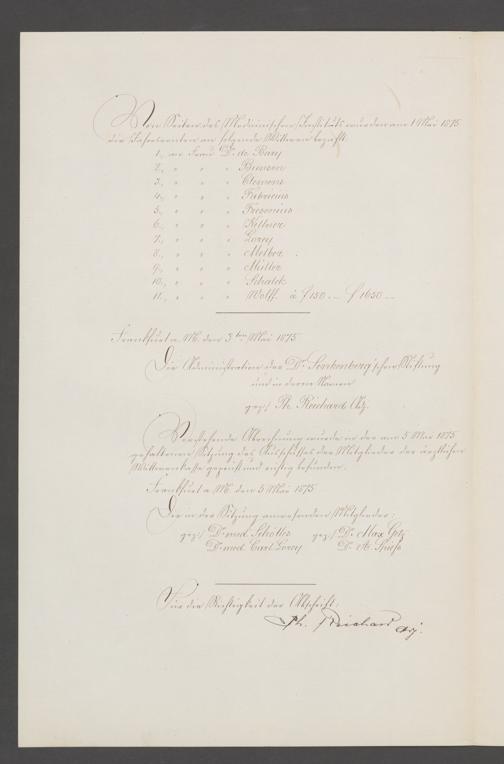 Von Seiten des Medicinischen Instituts wurden am 1 Mai 1875
die Jahresrenten an folgende Wittwen bezahlt:
1., an Frau Dr. de Bary
2., " " " Bronson
3., " " " Clemens
4., " " " Fabricius
5., " " " Fresenius
6., " " " Kellner
7., " " " Lorey
8., " " " Melber
9., " " " Müller
10., " " " Schalck
11., " " " Wolff. à f 150.— f 1650.—
Frankfurt a. M. den 3ten Mai 1875
Die Administration der Dr. Senckenberg'schen Stiftung
und in deren Namen
gez./ Ph. Reichard
Vorstehende Abrechnung wurde in der am 5 Mai 1875
gehaltenen Sitzung des Ausschusses der Mitglieder der ärztlichen
Wittwenkasse geprüft und richtig befunden.
Frankfurt a. M. den 5 Mai 1875
Die in der Sitzung anwesenden Mitglieder:
gez./ Dr. med. Schölles gez./ Dr. Max
Dr. med. Carl Lorey Dr. A. Spiess
Für die Richtigkeit der Abschrift:
Ph. Reichard